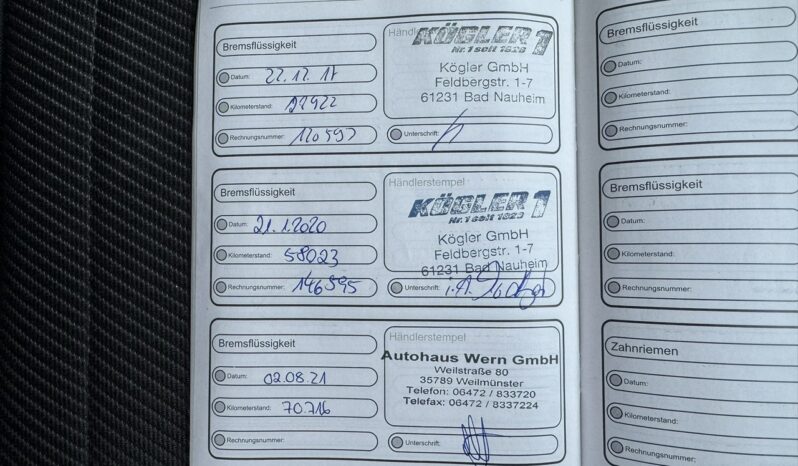 Bremsflüssigkeit
Datum: 22.12.17
Kilometerstand:
Rechnungsnummer:
Händlerstempel
KÖGLER 1
Nr. 1 seit 1823
Kögler GmbH
Feldbergstr. 1-7
61231 Bad Nauheim
Unterschrift:
Bremsflüssigkeit
Datum: 21.1.2020
Kilometerstand: 58023
Rechnungsnummer: 146595
Händlerstempel
KÖGLER 1
Nr. 1 seit 1823
Kögler GmbH
Feldbergstr. 1-7
61231 Bad Nauheim
Unterschrift: i.A.
Bremsflüssigkeit
Datum: 02.08.21
Kilometerstand: 70.716
Rechnungsnummer:
Händlerstempel
Autohaus Wern GmbH
Weilstraße 80
35789 Weilmünster
Telefon: 06472 / 833720
Telefax: 06472 / 8337224
Unterschrift:
Bremsflüssigkeit
Datum:
Kilometerstand:
Rechnungsnummer:
Bremsflüssigkeit
Datum:
Kilometerstand:
Rechnungsnummer:
Zahnriemen
Datum:
Kilometerstand:
Rechnungsnummer: